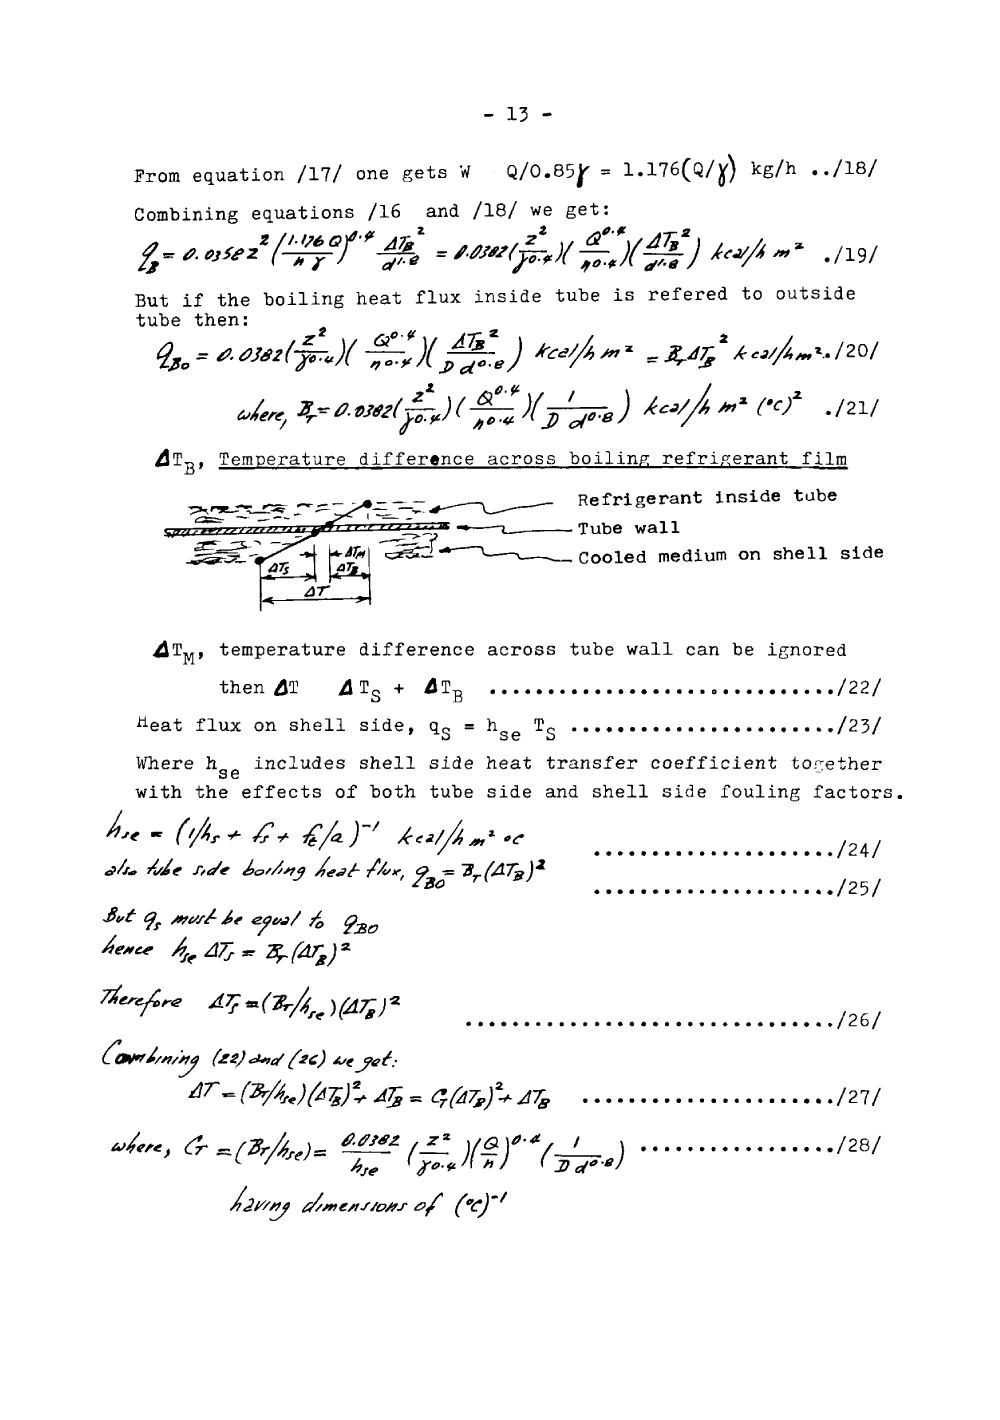 - 13 -
From equation /17/ one gets W   Q/0.85γ = 1.176(Q/γ) kg/h ../18/
Combining equations /16  and /18/ we get:
q_B = 0.0358 z² (1.176 Q / n γ)^0.4 ΔT_B² / d^1.8 = 0.0382 (z²/γ^0.4)(Q^0.4/n^0.4)(ΔT_B²/d^1.8) kcal/h m² ./19/
But if the boiling heat flux inside tube is refered to outside
tube then:
q_Bo = 0.0382 (z²/γ^0.4)(Q^0.4/n^0.4)(ΔT_B²/D d^0.8) kcal/h m² = B_r ΔT_B² kcal/h m². ./20/
where, B_r = 0.0382 (z²/γ^0.4)(Q^0.4/n^0.4)(1/D d^0.8) kcal/h m² (°C)² ./21/
ΔT_B, Temperature difference across boiling refrigerant film
Refrigerant inside tube
Tube wall
Cooled medium on shell side
ΔT_M
ΔT_S ΔT_B
ΔT
ΔT_M, temperature difference across tube wall can be ignored
then ΔT   ΔT_S + ΔT_B ............................../22/
Heat flux on shell side, q_S = h_se T_S ......................./23/
Where h_se includes shell side heat transfer coefficient together
with the effects of both tube side and shell side fouling factors.
h_se = (1/h_s + f_s + f_t/a)^-1 kcal/h m² °C ...................../24/
also tube side boiling heat flux, q_BO = B_r (ΔT_B)² ...................../25/
But q_s must be equal to q_BO
hence h_se ΔT_s = B_r (ΔT_B)²
Therefore ΔT_s = (B_r/h_se)(ΔT_B)² ................................/26/
Combining (22) and (26) we get:
ΔT = (B_r/h_se)(ΔT_B)² + ΔT_B = C_r (ΔT_B)² + ΔT_B ....................../27/
where, C_r = (B_r/h_se) = 0.0382/h_se (z²/γ^0.4)(Q/n)^0.4 (1/D d^0.8) ................./28/
having dimensions of (°C)^-1